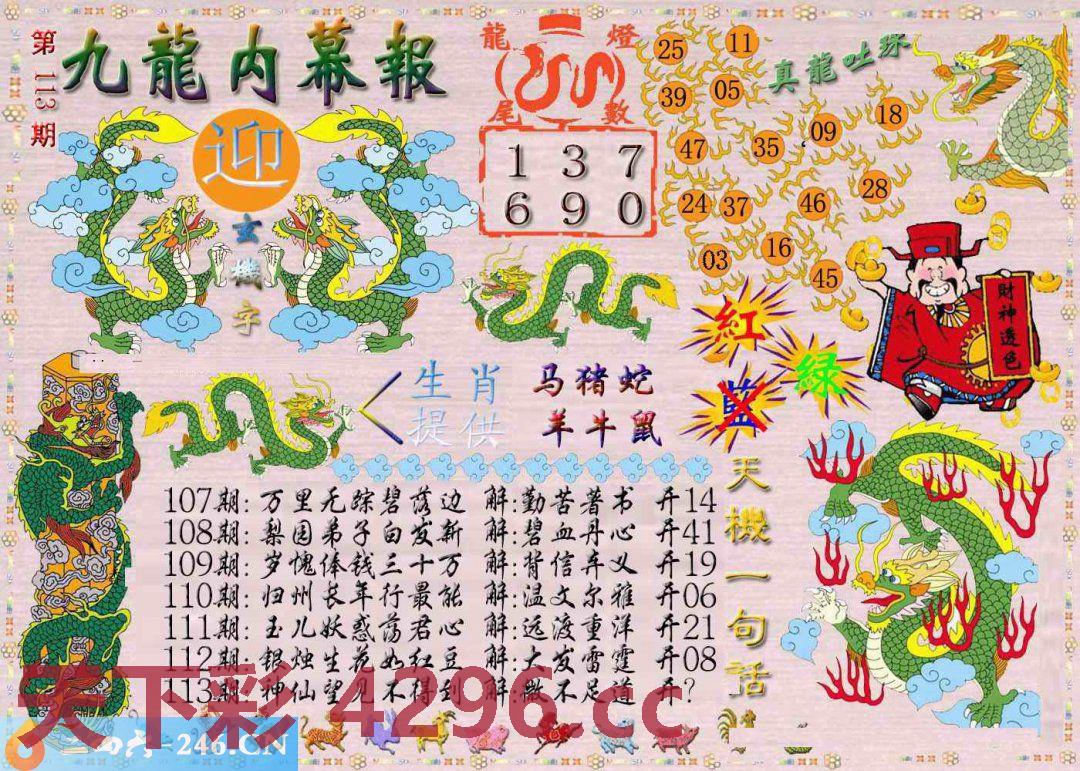 第113期
九龍内幕報
迎
玄機字
龍燈
尾數
1 3 7
6 9 0
真龍吐珠
25 11
39 05
47 35 09 18
24 37 46 28
03 16 45
財神透色
紅
藍
綠
生肖 马猪蛇
提供 羊牛鼠
天機一句话
107期: 万里无踪碧落边 解:勤苦著书 开14
108期: 梨园弟子白发新 解:碧血丹心 开41
109期: 岁愧俸钱三十万 解:背信弃义 开19
110期: 归州长年行最能 解:温文尔雅 开06
111期: 玉儿妖惑荡君心 解:远渡重洋 开21
112期: 银烛生花如红豆 解:大发雷霆 开08
113期: 神仙望见不得到 解:微不足道 开?
天下彩 4296.cc
246.CN